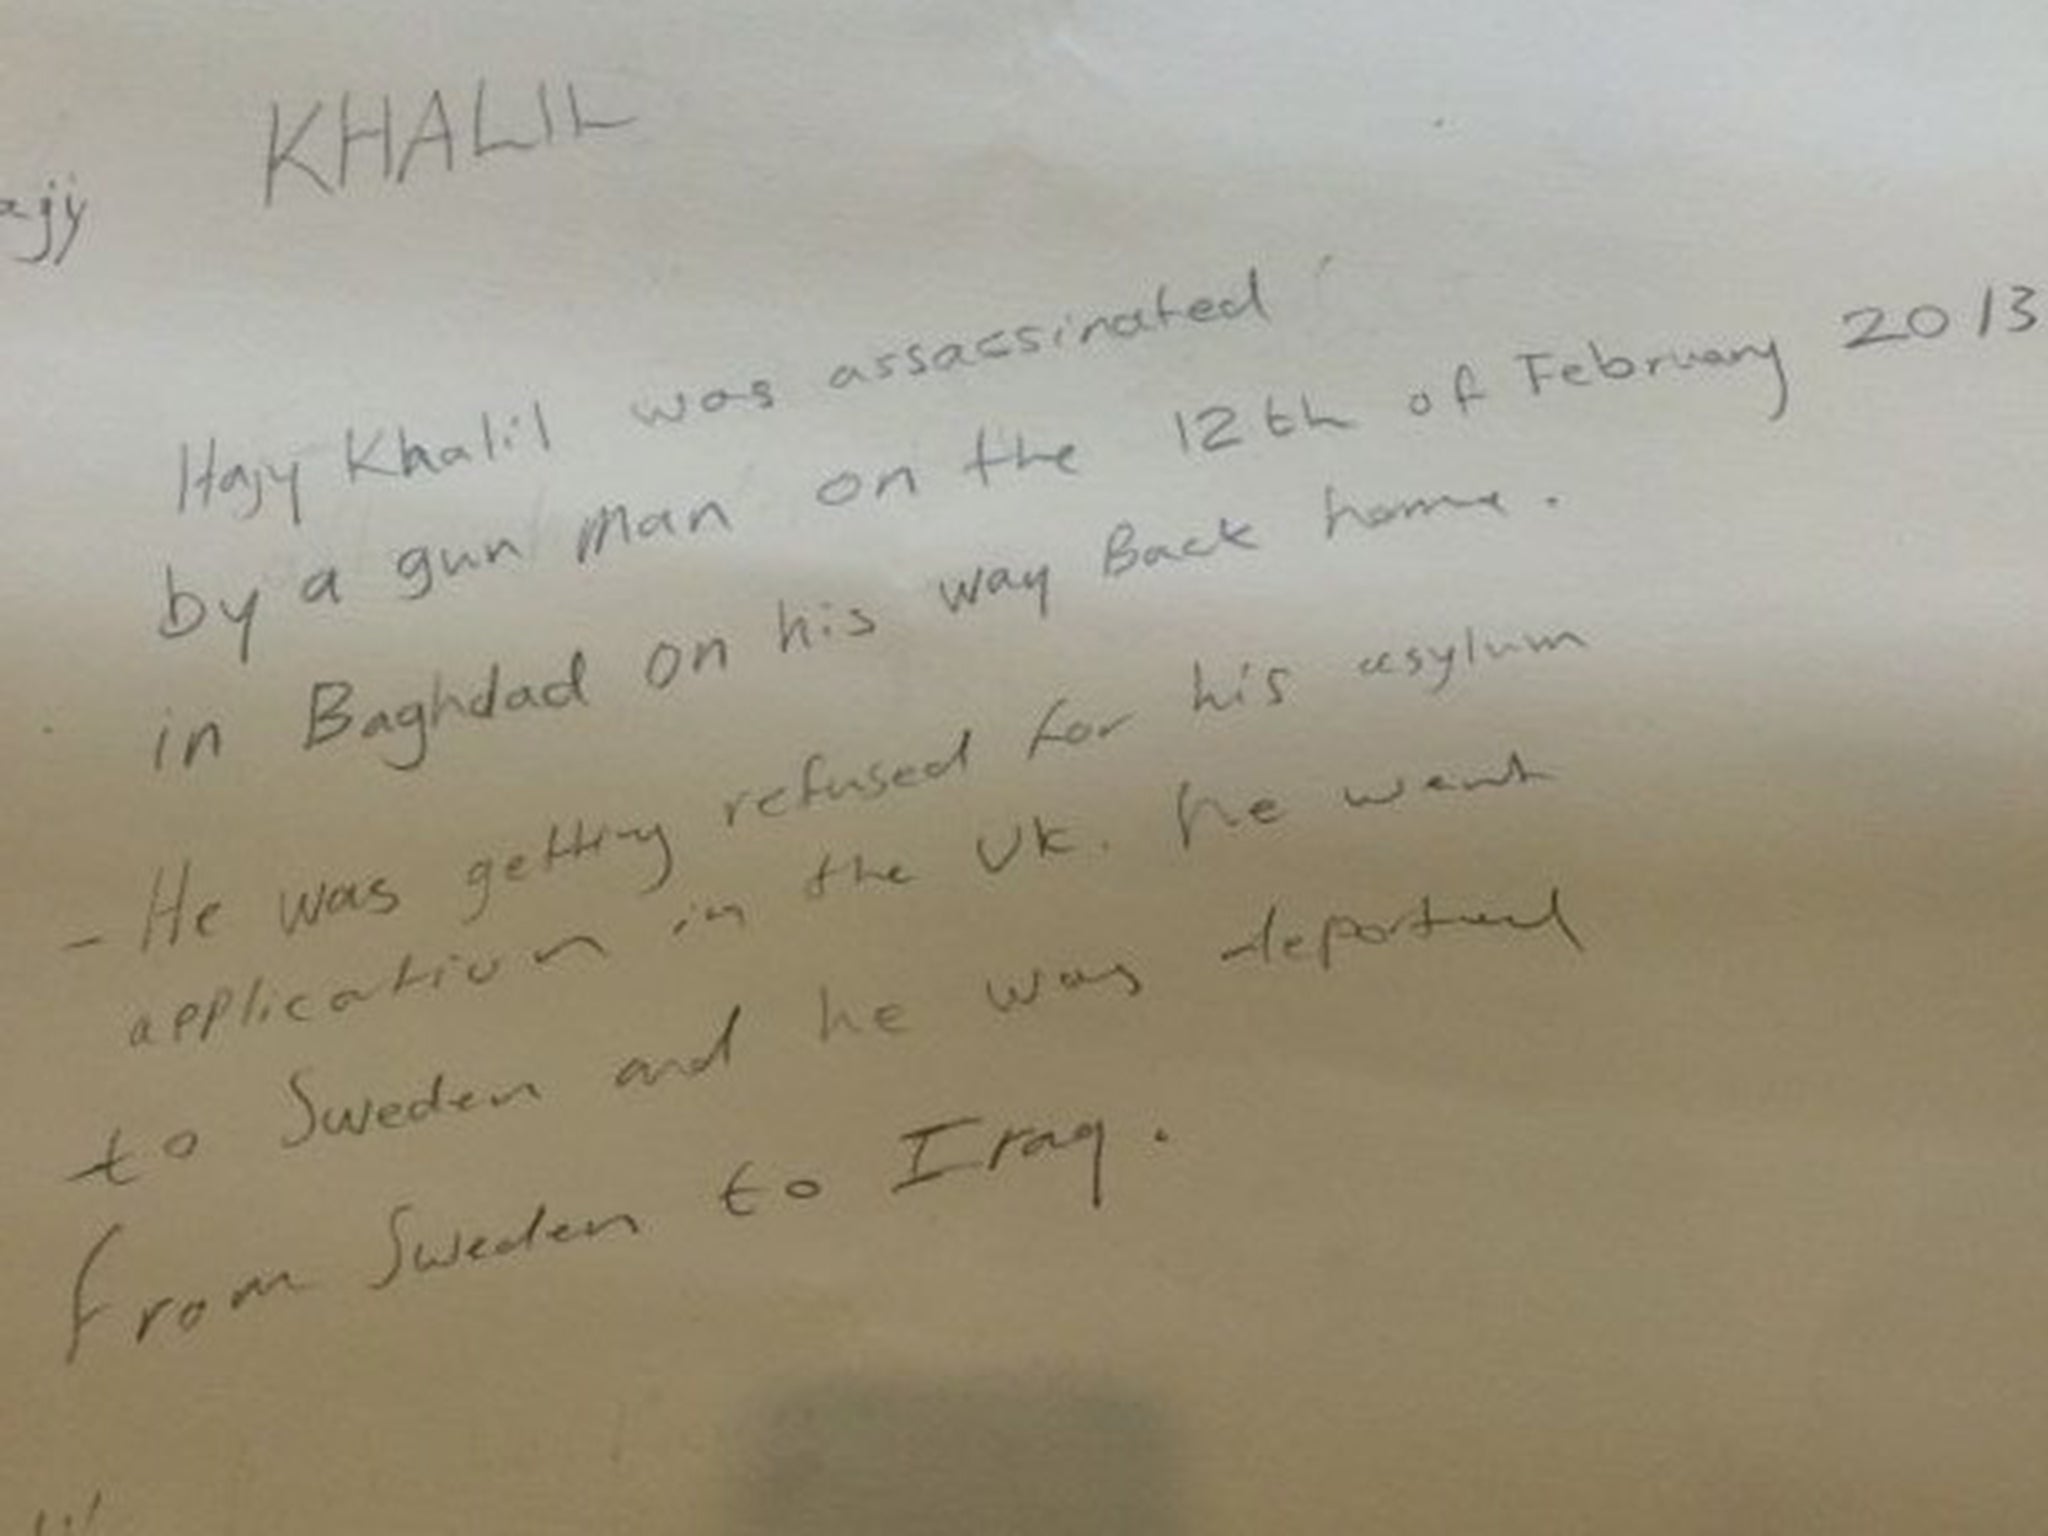 KHALIL
ajy
Hajy Khalil was assacsinated
by a gun man on the 12th of February 2013
in Baghdad on his way Back home.
- He was getting refused for his asylum
application in the UK. he went
to Sweden and he was deported
from Sweden to Iraq.